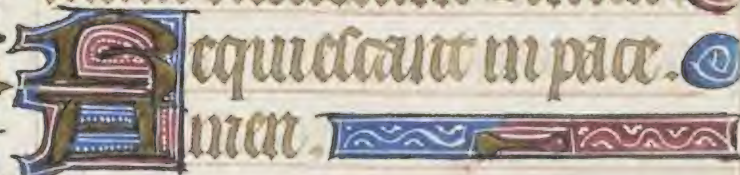 Requiescant in pace.
Amen.